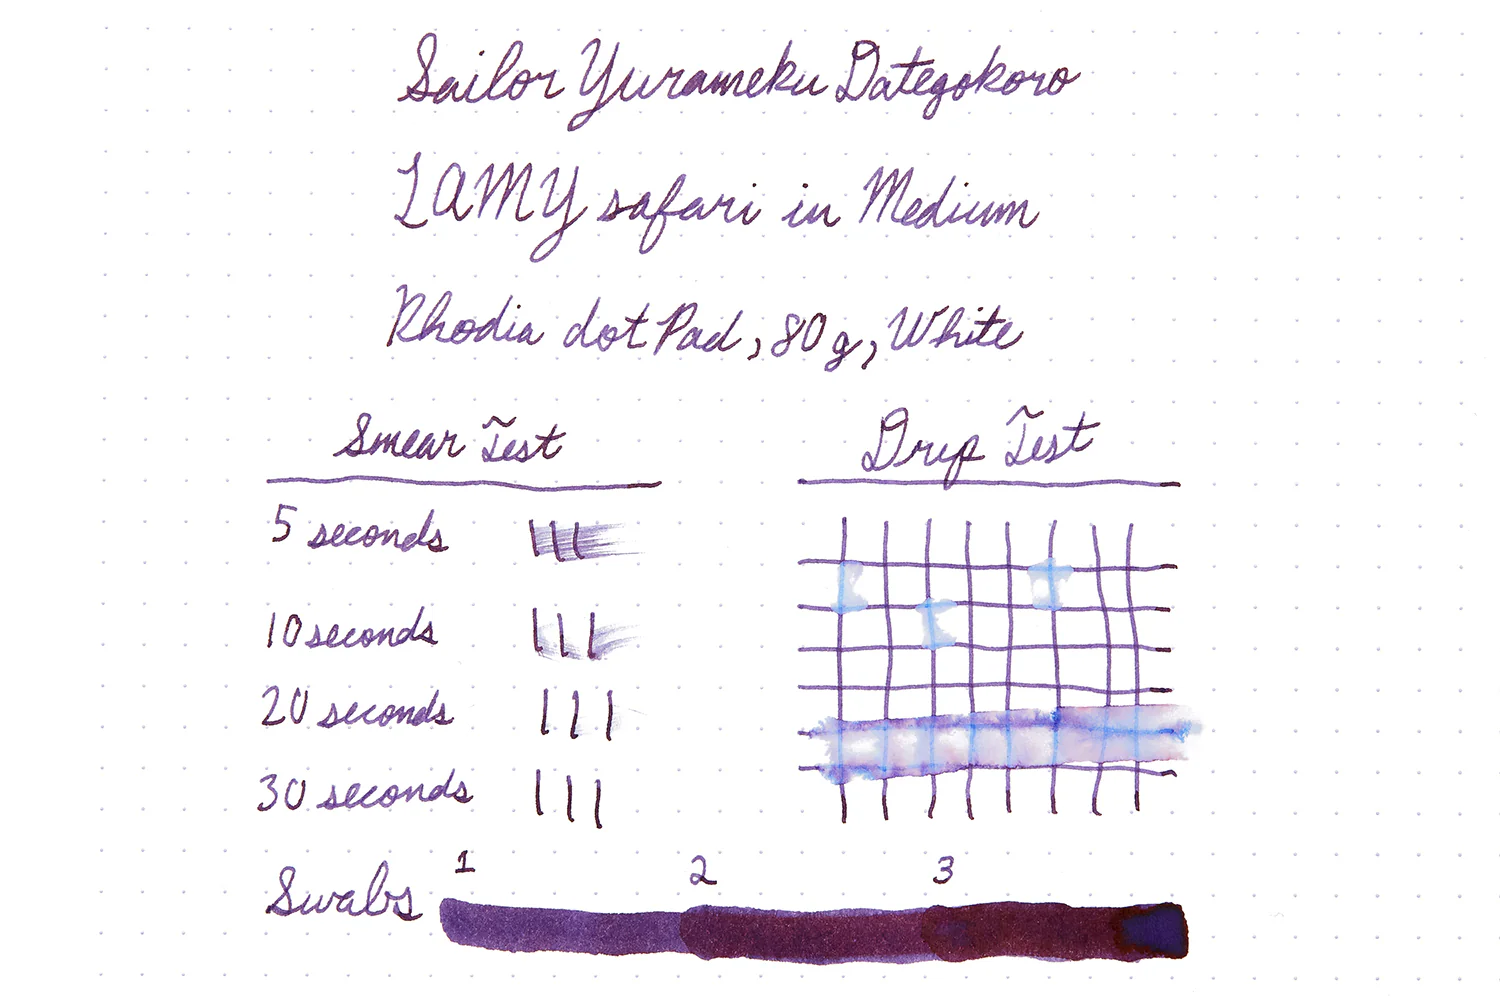 Sailor Yurameku Dategokoro
LAMY safari in Medium
Rhodia dot Pad, 80g, White
Smear Test
5 seconds
10 seconds
20 seconds
30 seconds
Drip Test
Swabs 1 2 3